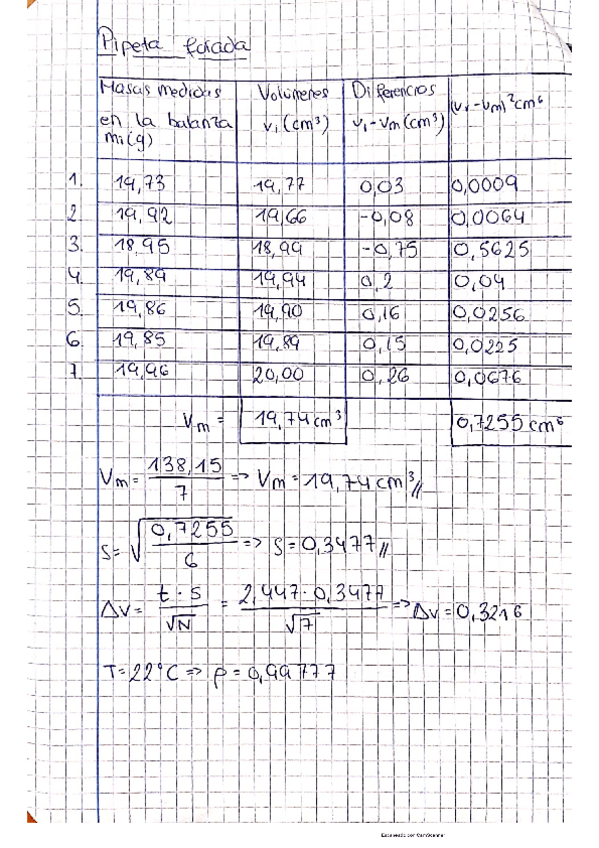 Pipeta forada
Masas medidas en la balanza mi(g) Volúmenes vi (cm³) Diferencias vi-vm (cm³) (vi-vm)²cm⁶
1. 19,73 19,77 0,03 0,0009
2. 19,92 19,66 -0,08 0,0064
3. 18,95 18,99 -0,75 0,5625
4. 19,89 19,94 0,2 0,04
5. 19,86 19,90 0,16 0,0256
6. 19,85 19,89 0,15 0,0225
7. 19,96 20,00 0,26 0,0676
Vm = 19,74 cm³ 0,7255 cm⁶
Vm = 138,15 / 7 => Vm = 19,74 cm³//
S = √(0,7255 / 6) => S = 0,3477//
ΔV = t · s / √N = 2,447 · 0,3477 / √7 => ΔV = 0,3216
T = 22°C => ρ = 0,99777
Escaneado con CamScanner